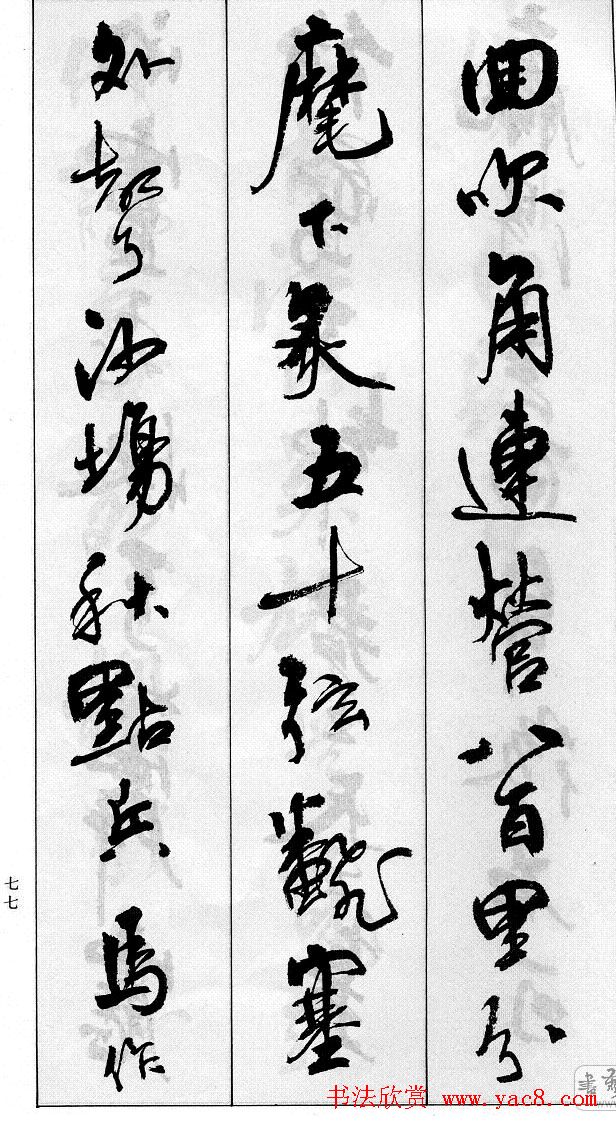 回吹角連營八百里分
麾下炙五十弦翻塞
外聲沙場秋點兵馬作
七七
书法欣赏 www.yac8.com